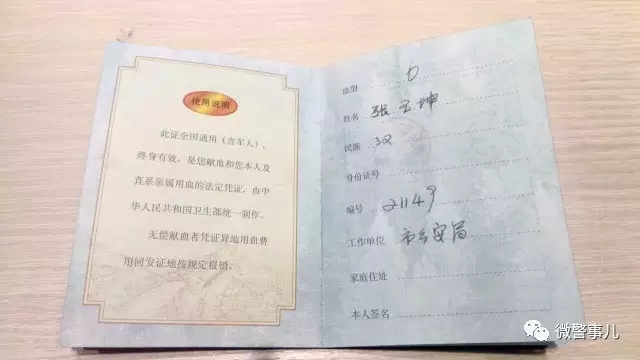 使用说明
此证全国通用(含军人)、
终身有效，是您献血和您本人及
直系亲属用血的法定凭证，由中
华人民共和国卫生部统一制作。
无偿献血者凭证异地用血费
用回发证地按规定报销。
血型
姓名 张玉坤
民族 汉
身份证号
编号 21149
工作单位 市公安局
家庭住址
本人签名
微警事儿